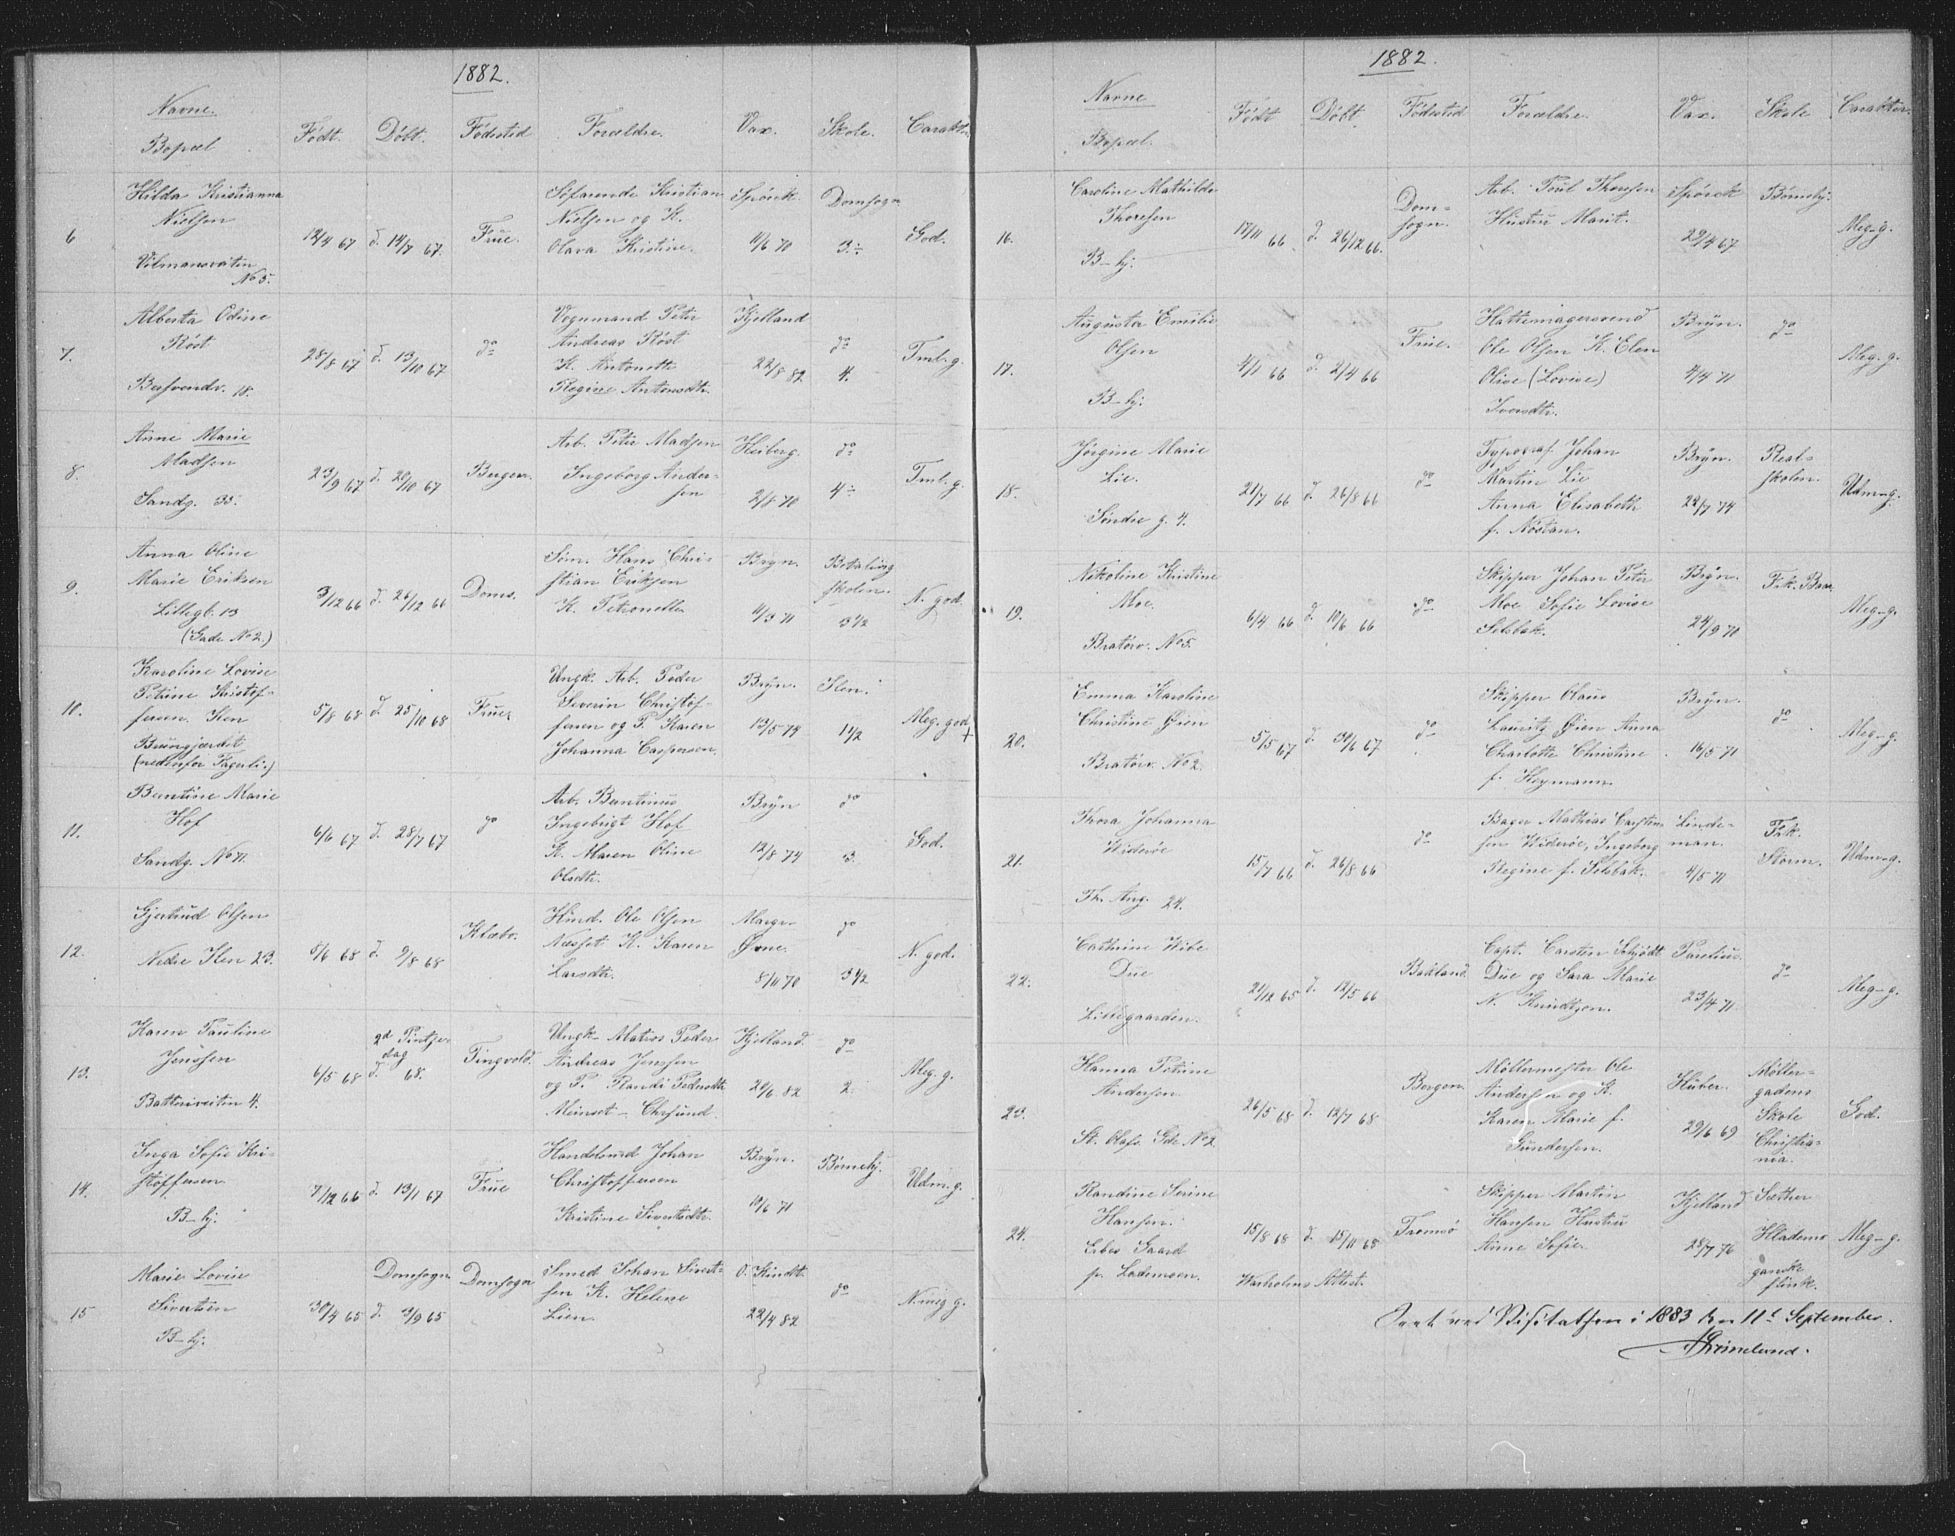 1882.
Navne.
Bopæl
Født.
Døbt.
Fødested
Forældre.
Vax.
Skole.
Carakt.
6
Hilda Kristianna
Nielsen
No 5.
12/4 67
d. 14/7 67.
Frue.
Søfarende Kristian
Nielsen og K.
Olava Kristine.
Domsogn
3÷
God.
7.
Alberta Odine
Røst
18.
28/8 67
d. 13/10 67
do
Vognmand Peter
Andreas Røst
K. Antonette
Regine Antonsdtr.
Kjelland
22/8 82
do
4.
Tml. g.
8.
Anne Marie
Madsen
Sandg. 35.
23/9 67
d. 20/10 67
Bergen.
Arb. Peter Madsen
Ingeborg Ander-
sen
Heiberg.
2/8 70
do
4÷
Tml. g.
9.
Anna Oline
Marie Eriksen
Lillegb. 13
(Gade No 2.)
3/12 66
d. 26/12 66
Doms.
Søm. Hans Chri-
stian Eriksen
K. Petronelle
Bryn.
4/3 71
Betaling
skolen.
3 1/2
N. god.
10.
Karoline Lovise
Petrine Kristof-
fersen. Ilen
(nedenfor Fagerli.)
5/8 68
d. 25/10 68
Frue
Ungk. Arb. Peder
Severin Christof-
fersen og P. Karen
Johanna Casperson.
Bryn.
13/5 74
Ilen.
1 1/2
Meg. god
+
11.
Berntine Marie
Hof
Sandg. No 71.
6/6 67
d. 28/7 67
do
Arb. Berntinus
Ingebrigt Hof
K. Maren Oline
Olsdtr.
Bryn
12/8 74
do
3.
God.
12.
Gjertrud Olsen
Nedre Ilen 23.
5/6 68
d. 9/8 68
Klæbo.
Huusd. Ole Olsen
K. Karen
Larsdtr.
8/11 70
do
3 1/2
N. god.
13.
Karen Pauline
Jenssen
Batteriveiten 4.
6/5 68
2d Pintse-
dag
d. 68.
Tingvold.
Ungk. Matros Peder
Andreas Jenssen
og P. Randi Pedersdtr
Meirset - Chrsund.
Kjelland.
20/6 82
do
2.
Meg. g.
14.
Inga Sofie Kri-
stoffersen.
B-hj.
7/12 66
d. 13/1 67
Frue
Handelsmd Johan
Christoffersen
Kristine Sivertsdtr.
Bryn.
10/6 71
Børnehj.
Udm. g.
15
Marie Lovise
Sivertsen
B-hj.
30/4 65
Domsogn
d. 3/9 65
Domsogn
Smed Johan Sivert-
sen K. Helene
Lien.
O. Kindt.
22/4 82
do
N. meg g.
1882.
Navne
Bopæl.
Født
Døbt.
Fødested
Forældre.
Vax.
Skole
Carakter.
16.
Caroline Mathilde
Thoresen
B-hj.
17/11 66
d. 26/12 66.
Dom-
sogn.
Arb. Poul Thoresen
Hustru Marit.
29/4 67
Børnehj.
Meg-g.
17.
Augusta Emilie
Olsen
B-hj.
4/1 66
d. 2/4 66
Frue.
Hattemagersvend
Ole Olsen K. Elen
Olive (Lovise)
Iversdtr.
Bryn.
4/4 71
do
Meg-g.
18.
Jørgine Marie
Lie.
Søndre g. 4.
21/7 66
d. 26/8 66
do
Typograf Johan
Martin Lie
Anna Elisabeth
f. Nøstan.
Bryn.
22/7 74
Real-
skolen.
Udm-g.
19.
Nikoline Kristine
Moe.
Bratørv. No 5.
6/4 66
d. 10/6 66
do
Skipper Johan Peter
Moe Sofie Lovise
Selsbak.
Bryn.
24/9 70
Meg-g.
20.
Emma Karoline
Christine Øien
Bratørv. No 2.
5/5 67
d. 30/6 67
do
Skipper Olaus
Lauritz Øien Anna
Charlotte Christine
f. Heymann.
Bryn.
16/5 71
do
Meg-g.
21.
Thora Johanna
Widerøe
Th. Ang. 24.
15/7 66
d. 26/8 66
do
Bager Mathias Carsten-
sen Widerøe, Ingeborg
Regine f. Selsbak.
Linde-
man.
4/5 71
Frk.
Storm.
Udm-g.
22.
Cathrine Wibe
Due
Lillegaarden.
21/12 65
d. 12/5 66
Bakland.
Capt. Carsten Schjødt
Due og Sara Marie
N. Knudtzon.
Parelius.
23/4 71
do
Meg-g.
23.
Hanna Petrine
Andersen.
St. Olafs Gde. No 2
26/5 68
d. 12/7 68
Bergen.
Møllermester Ole
Andersen og K.
Karen Marie f.
Gundersen.
29/6 69
Møller-
gadens
Skole
Christia-
nia.
God.
24.
Randine Serine
Hansen.
Erbes Gaard
p. Lademoen.
15/8 68
d. 15/11 68
Warholms Attest.
Tromsø
Skipper Martin
Hansen Hustru
Anne Sofie.
Kjelland
28/7 76
Sæther
Hladems
ganske
flink.
Meg-g.
Seet ved Visitatsen i 1883 den 11te September.
Grimelund.